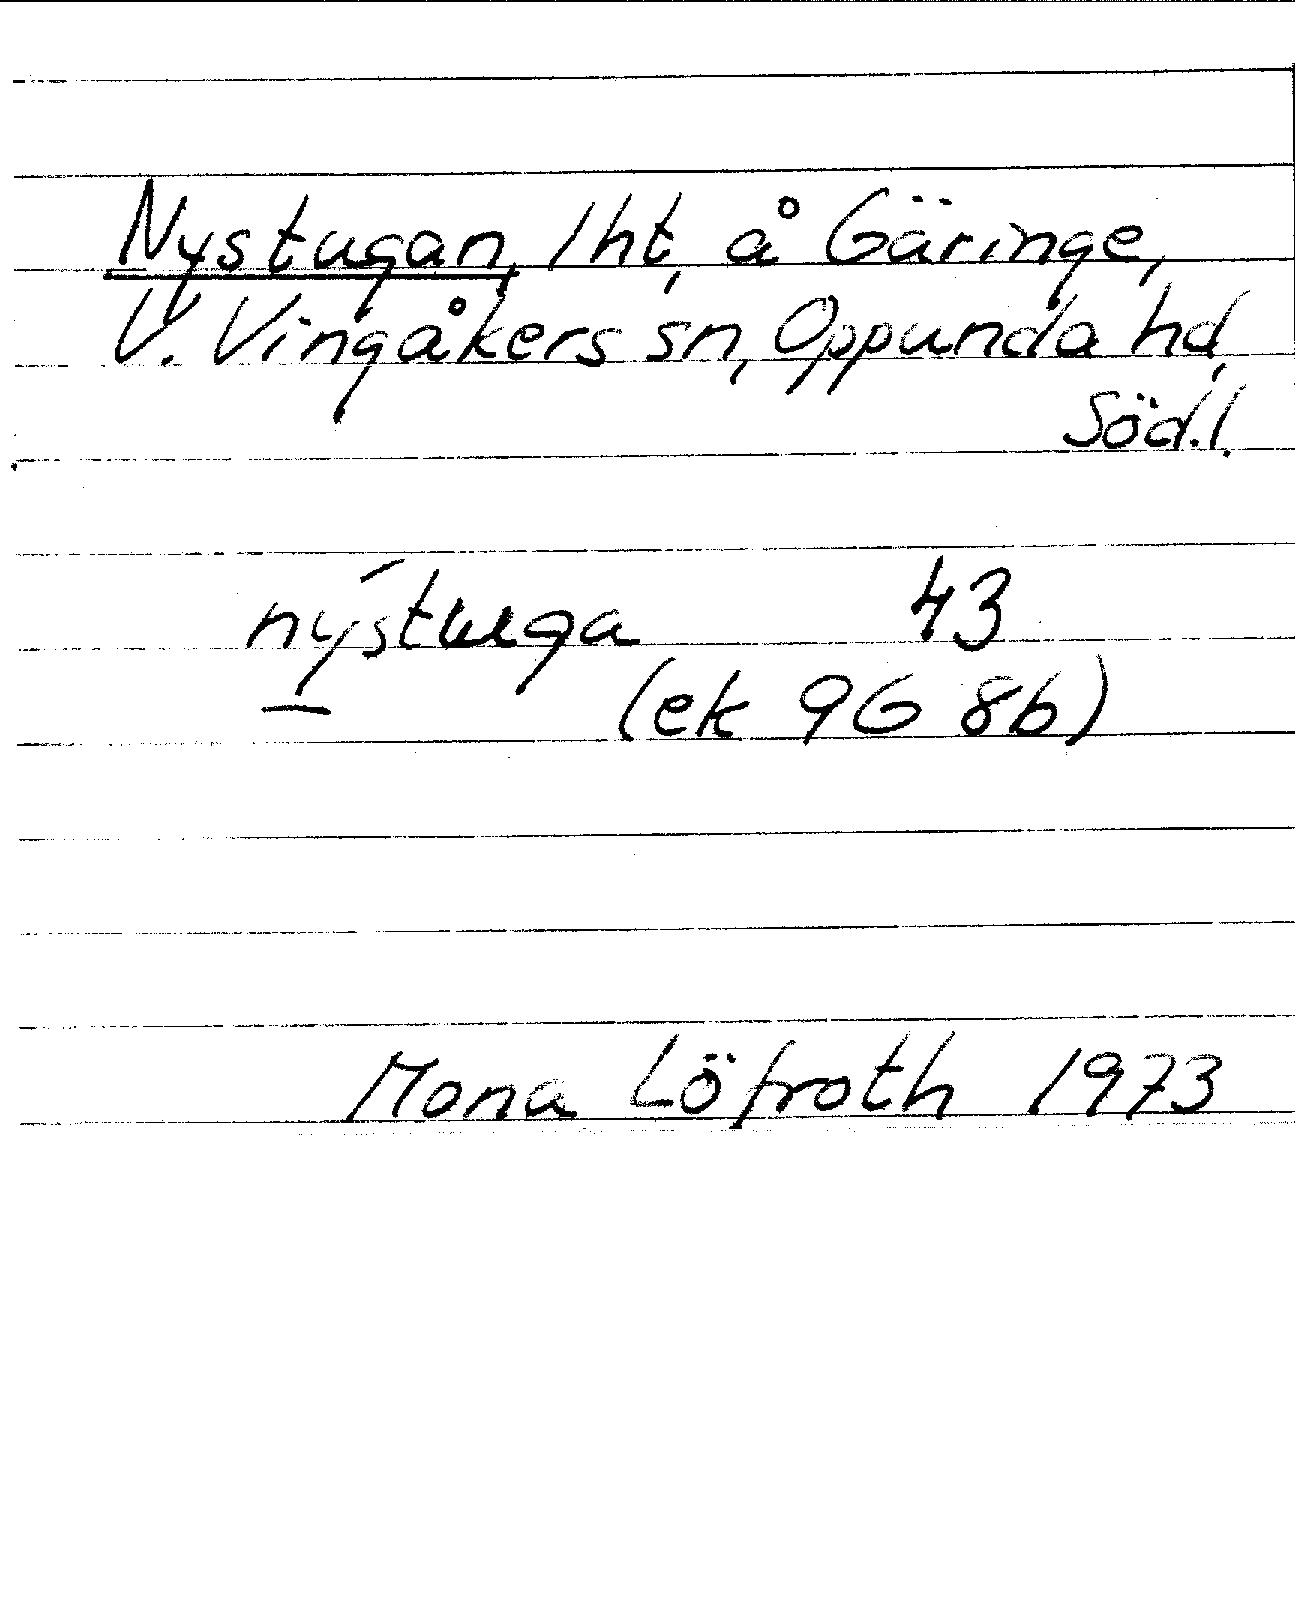 Nystugan, lht, å Gäringe,
V. Vingåkers sn, Oppunda hd,
Söd.l.
nýstuga 43
(ek 9G 8b)
Mona Löfroth 1973